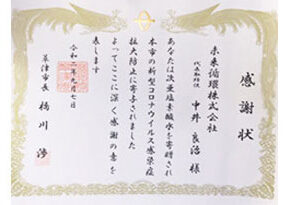 感謝状
未来循環株式会社
代表取締役 中井良治様
あなたは次亜塩素酸水を寄贈され
本市の新型コロナウイルス感染症
拡大防止に寄与されました
よってここに深く感謝の意を
表します
令和二年九月七日
草津市長 橋川渉